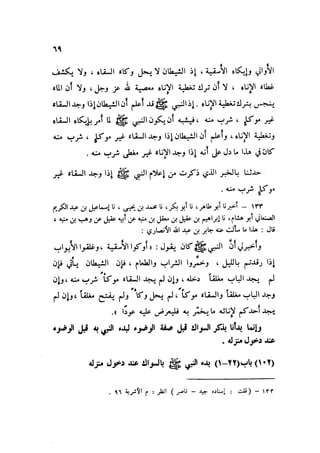 ٦٩
الأواني وإيكاء الأسقية ، إذ الشيطان لا يحل وكاء السقاء ، ولا يكشف
غطاء الإناء ، لا أن ترك تغطية الإناء معصية لله عز وجل ، ولا أن الماء
ينجس بترك تغطية الإناء . إذ النبي ﷺ قد أعلم أن الشيطان إذا وجد السقاء
غير موكى ، شرب منه ، فيشبه أن يكون النبي ﷺ لما أمر بإيكاء السقاء
وتغطية الإناء ، وأعلم أن الشيطان إذا وجد السقاء غير موكى ، شرب منه ،
كان في هذا ما دل على أنه إذا وجد الإناء غير مغطى شرب منه .
حدثنا بالخبر الذي ذكرت من إعلام النبي ﷺ إذا وجد السقاء غير
موكى شرب منه .
١٣٣ – أخبرنا أبو طاهر ، نا أبو بكر ، نا محمد بن يحيى ، نا إسماعيل بن عبد الكريم
الصنعاني أبو هشام ، نا إبراهيم بن عقيل بن معقل بن منبه عن أبيه عقيل عن وهب بن منبه ،
قال : هذا ما سألت عنه جابر بن عبد الله الأنصاري :
وأخبرني أن النبي ﷺ كان يقول : « أوكوا الأسقية ، وغلقوا الأبواب
إذا رقدتم بالليل ، وخمروا الشراب والطعام ، فإن الشيطان يأتي فإن
لم يجد الباب مغلقاً دخله ، وإن لم يجد السقاء موكأً شرب منه ، وإن
وجد الباب مغلقاً والسقاء موكأً ، لم يحل وكاءً ولم يفتح مغلقاً ، وإن لم
يجد أحدكم لإنائه ما يخمر به فليعرض عليه عوداً » .
وإنما بدأنا بذكر السواك قبل صفة الوضوء لبدء النبي به قبل الوضوء
عند دخول منزله .
(١٠٢) باب (٢٢–١) بدء النبي ﷺ بالسواك عند دخول منزله
١٣٣ – ( قلت : إسناده جيد – ناصر ) انظر : م الأشربة ٩٦ .